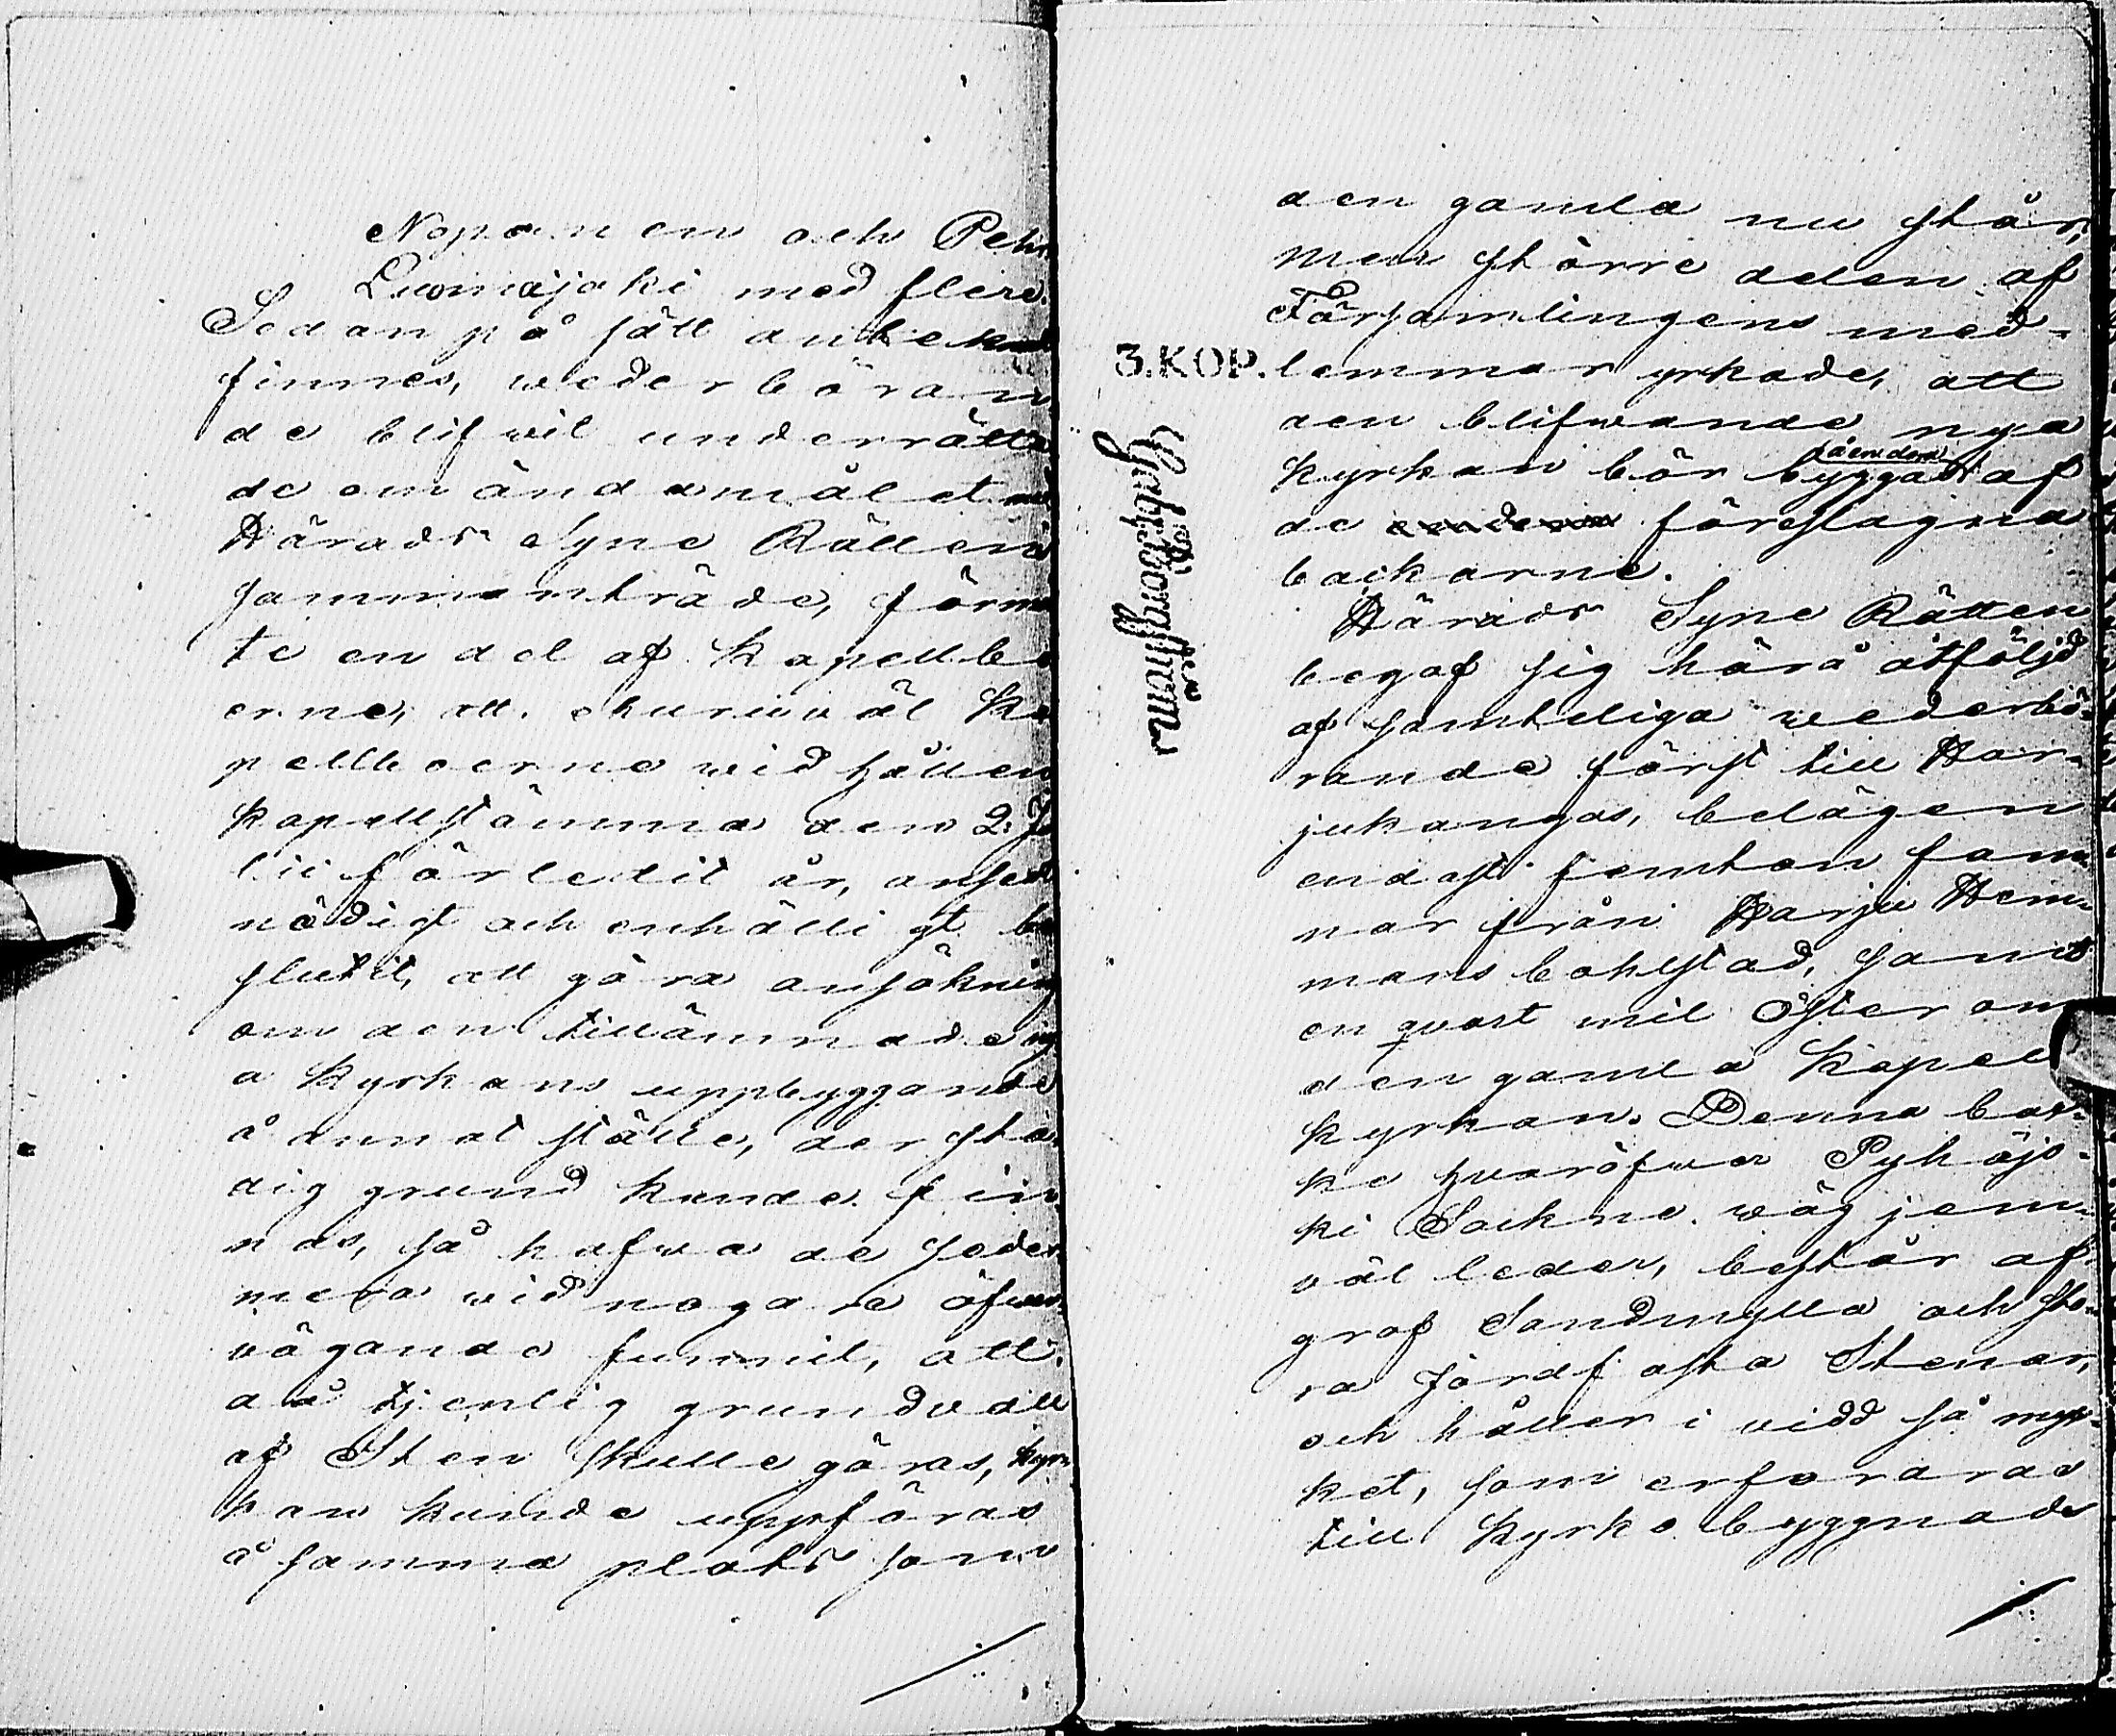 Nopanen och Pehr
Luomajoki med flere.
Sedan på sätt antekn
finnes, wederböran
de blifwit underrätta
de om ändamålet
Härads Syne Rättens
sammanträde, förm
te en del af Kapellbo
erne, att ehuruwäl Ka
pellboerne wid hållen
Kapellstämma den 2 Ju
lii förledit år, ansedt
nödigt och enhälligt be
slutit, att göra ansökning
om den tillämnade ny
a Kyrkans uppbyggande
å annat ställe, der sta
dig grund kunde fin
nas, så hafwa de seder
mera wid nogare öfwer
vägande funnit, att,
då tjenlig grundvall
af Sten skulle göras, kyr-
kan kunde uppföras
å samma plats som
den gamla nu står,
men större delen af
Församlingens med-
3. KOP. lemmar yrkade, att
den blifwande nya
kyrkan bör byggas å endera af
de föreslagna
backarne.
Härads Syne Rätten
begaf sig härå åtföljd
af samteliga wederbö-
rande först till Har-
jukangas, belägen
endast femton fam-
nar från Harju Hem-
mans bohlstad, samt
en qvart mil Öster om
den gamla Kapell
kyrkan. Denna bac-
ke hvaröfwer Pyhäjo-
ki Sockne wäg jem-
väl leder, består af
grof Sandmylla och sto-
ra jordfasta Stenar,
och håller i vidd så myc-
ket, som erfordras
till Kyrko byggnads